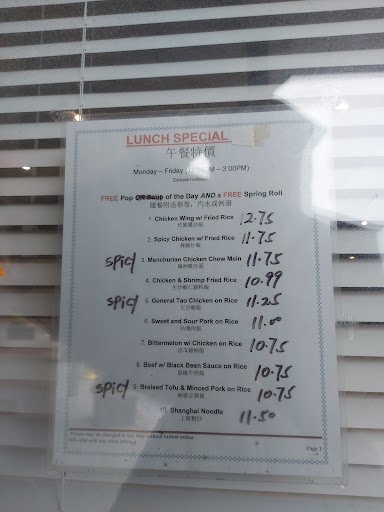 LUNCH SPECIAL
午餐特價
Monday – Friday ( AM – 3:00PM)
Exclude Holidays
FREE Pop OR Soup of the Day AND a FREE Spring Roll
隨餐附送春卷，汽水或例湯
1. Chicken Wing w/ Fried Rice 12.75
2. Spicy Chicken w/ Fried Rice 11.75
spicy 3. Manchurian Chicken Chow Mein 11.75
4. Chicken & Shrimp Fried Rice 10.99
spicy 5. General Tao Chicken on Rice 11.25
6. Sweet and Sour Pork on Rice 11.00
7. Bittermelon w/ Chicken on Rice 10.75
8. Beef w/ Black Bean Sauce on Rice 10.75
spicy 9. Braised Tofu & Minced Pork on Rice 10.75
10. Shanghai Noodle 11.50
上海粗炒
*Prices may be changed at any time without further notice
*Not valid with any other offering
Page 1